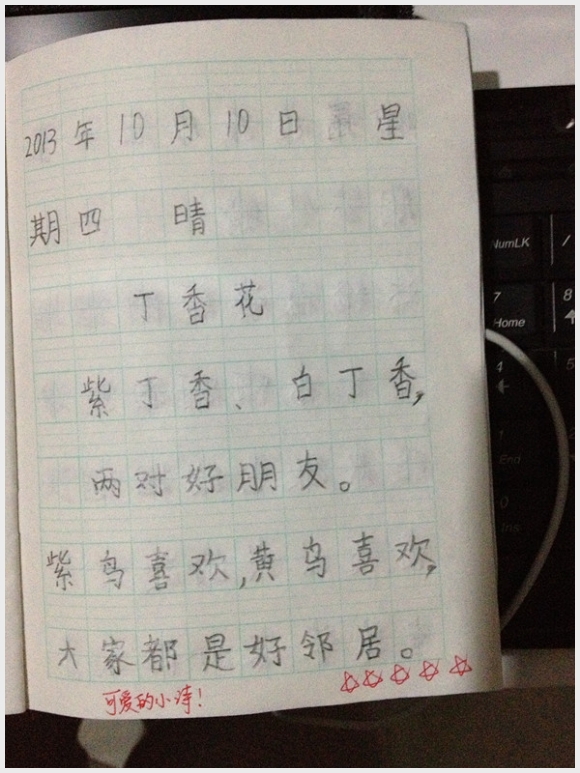 2013年10月10日 星
期四 晴
丁香花
紫丁香、白丁香,
两对好朋友。
紫鸟喜欢,黄鸟喜欢,
大家都是好邻居。
可爱的小诗!
☆☆☆☆☆
NumLK
/
7
8
Home
4
5
1
End
0
Ins